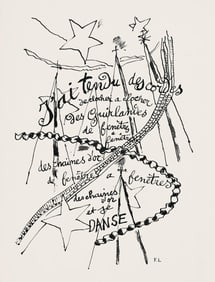 J'ai tendu des cordes
de clocher a clocher
des Guirlandes
de fenêtre a
fenêtre
des chaines d'or
de fenêtre a fenêtres
des chaines
d'or
et je
DANSE
F L